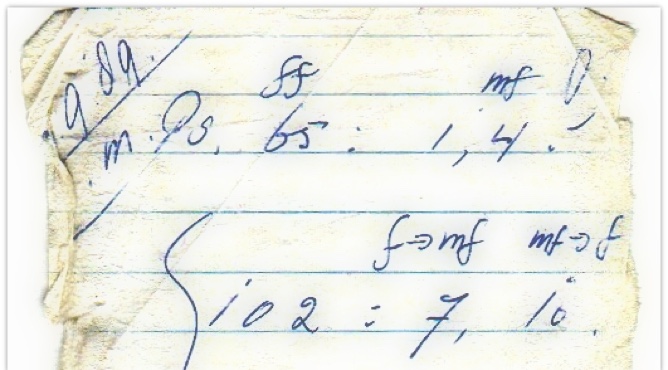 9.89.
ff mf p.
m. Ps. 65 : 1, 4.
f=mf mf=f
102 : 7, 10.